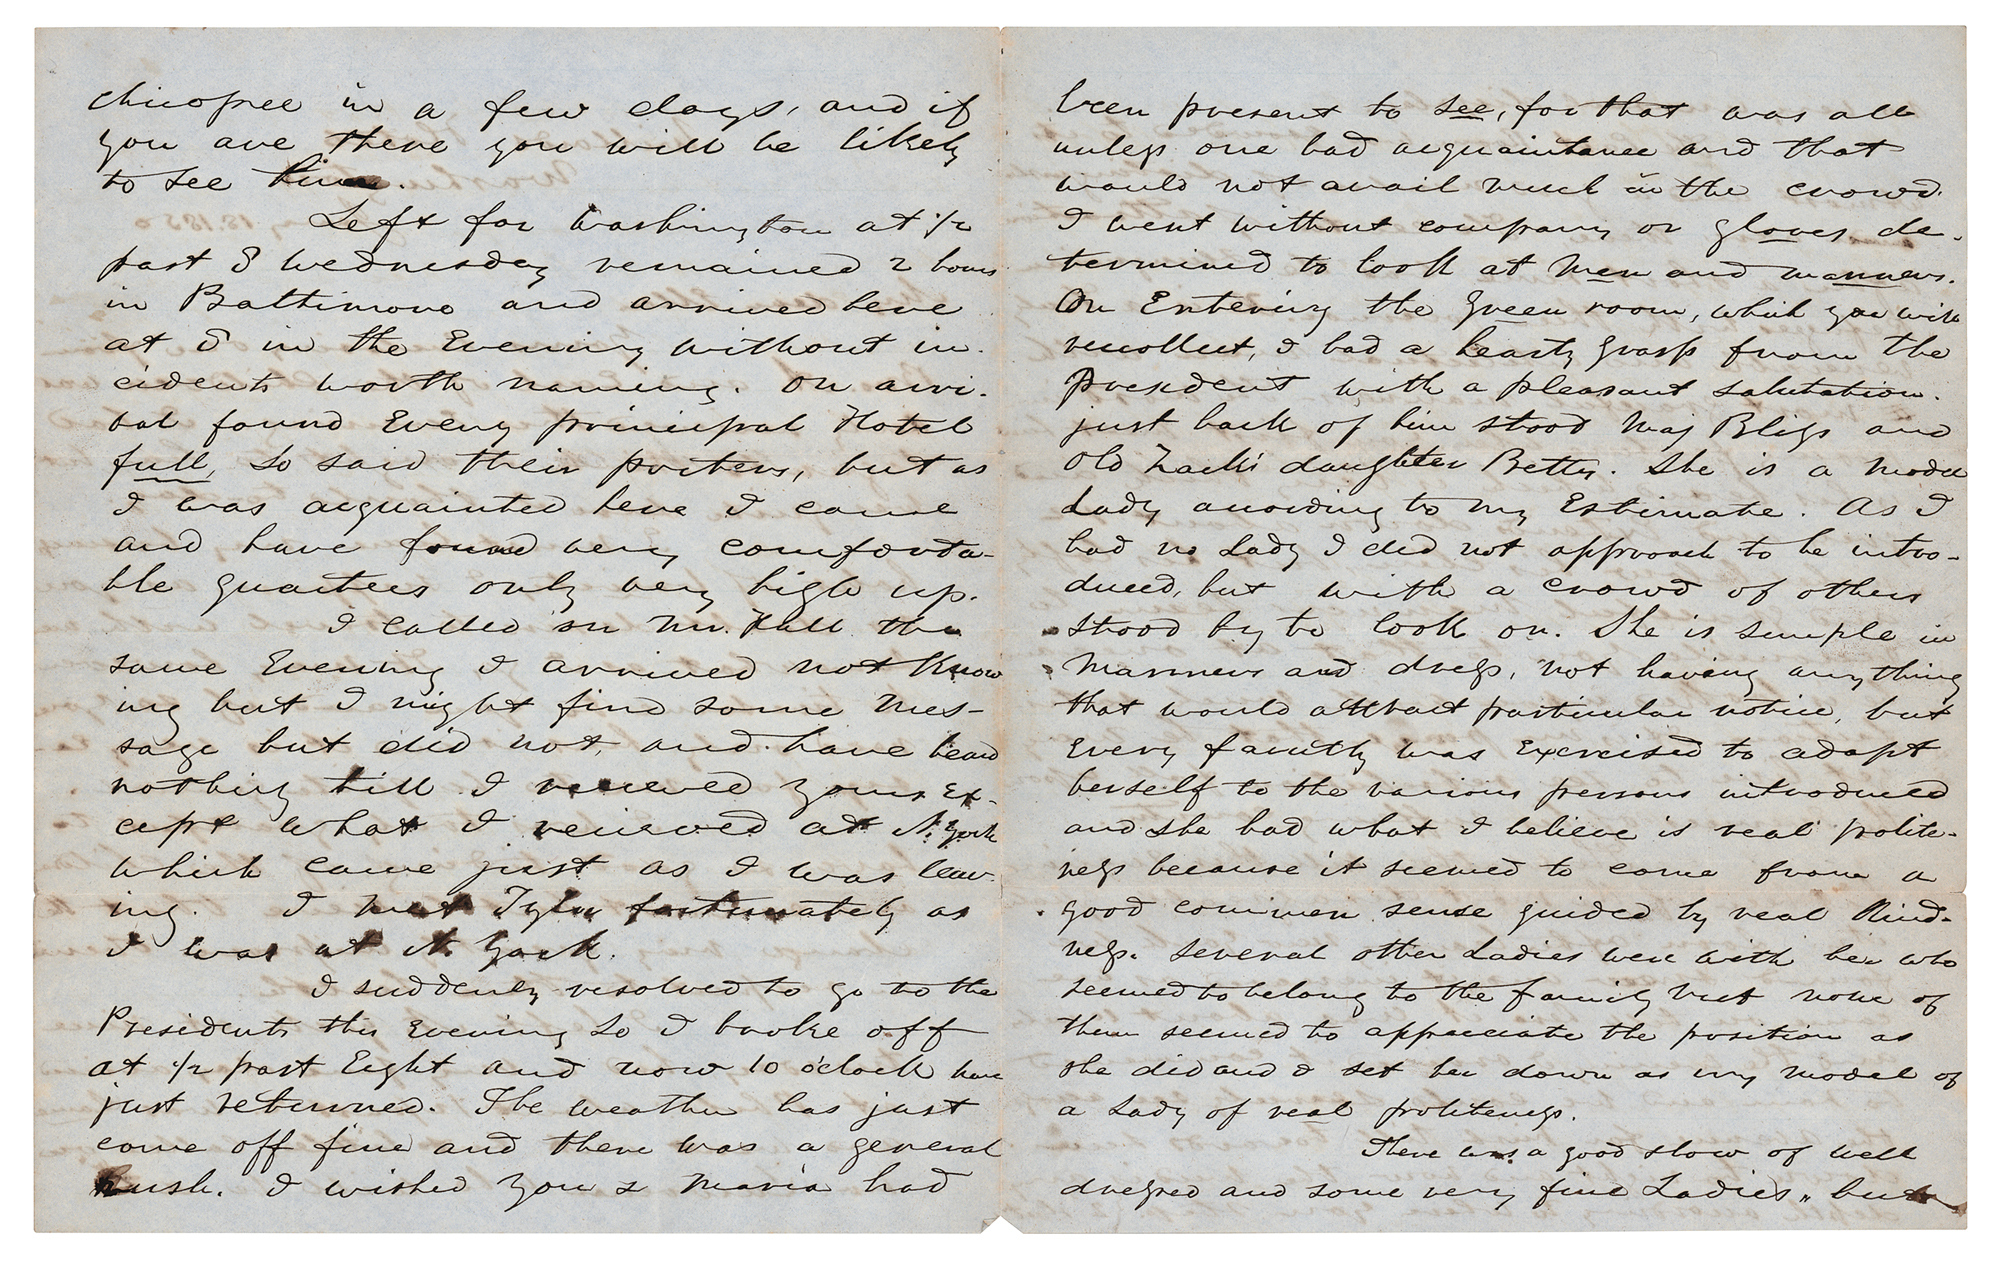 Chicopee in a few days, and if
you are there you will be likely
to see him.
Left for Washington at 1/2
past 8 Wednesday remained 2 hours
in Baltimore and arrived here
at 8 in the Evening without in-
cidents worth naming. On arri-
val found Every principal Hotel
full, so said their porters, but as
I was acquainted here I came
and have found very comforta-
ble quarters only very high up.
I called on Mr. Hall the
same Evening I arrived not know
ing but I might find some mes-
sage but did not, and have heard
nothing till I received yours Ex-
cept what I received at N. York
which came just as I was leav-
ing. I met Tyler fortunately as
I was at N. York.
I suddenly resolved to go to the
Presidents this Evening so I broke off
at 1/2 past Eight and now 10 o'clock have
just returned. The weather has just
come off fine and there was a general
Rush. I wished you & Maria had
been present to see, for that was all
unless one had acquaintance and that
would not avail much in the crowd.
I went without company or gloves de-
termined to look at men and manners.
On Entering the Green room, which you will
recollect, I had a hearty grasp from the
President with a pleasant salutation.
just back of him stood Maj Bliss and
Old Zack's daughter Betty. She is a model
Lady according to my Estimate. As I
had no Lady I did not approach to be intro-
duced, but with a crowd of others
stood by to look on. She is simple in
manners and dress, not having anything
that would attract particular notice, but
Every faculty was Exercised to adapt
herself to the various persons introduced
and she had what I believe is real polite-
ness because it seemed to come from a
good common sense guided by real kind-
ness. Several other Ladies were with her who
seemed to belong to the family but none of
them seemed to appreciate the position as
she did and I set her down as my model of
a Lady of real politeness.
There was a good show of well
dressed and some very fine Ladies, but